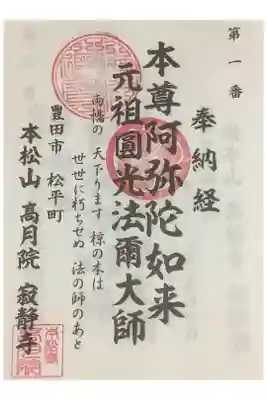 第一番
奉納経
本尊阿弥陀如来
元祖圓光法爾大師
両幡の 天下ります 椋の木は
世世に朽ちせぬ 法の師のあと
豊田市 松平町
本松山 高月院 寂静寺